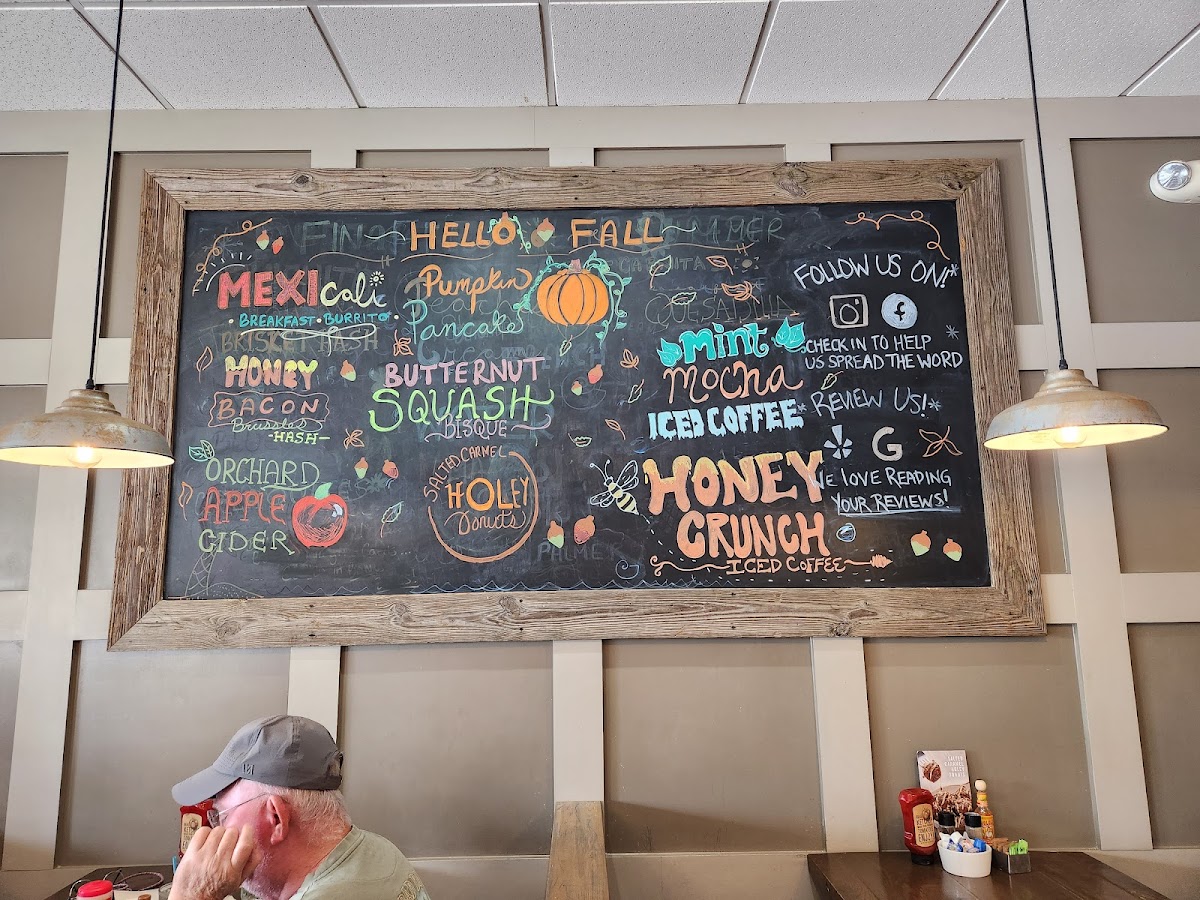 HELLO FALL
MEXICALI
BREAKFAST • BURRITO
BRISKET HASH
HONEY
BACON
Brussles
-HASH-
ORCHARD
APPLE
CIDER
Pumpkin
Pancake
BUTTERNUT
SQUASH
BISQUE
SALTED CARMEL
HOLEY
Donuts
PALMER
QUESADILLA
Mint
Mocha
ICED COFFEE
HONEY
CRUNCH
ICED COFFEE
FOLLOW US ON!*
f
CHECK IN TO HELP
US SPREAD THE WORD
REVIEW US!*
G
WE LOVE READING
YOUR REVIEWS!